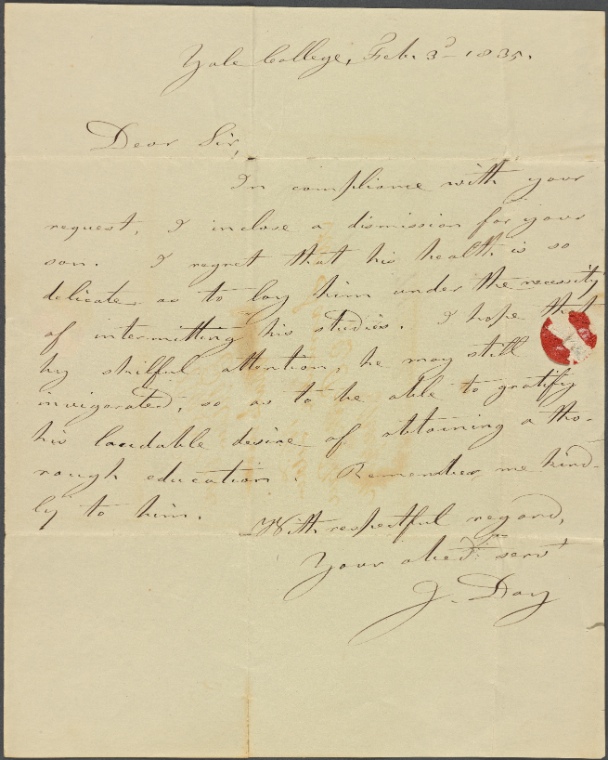 Yale College, Feb. 3d 1835.
Dear Sir,
In compliance with your
request, I inclose a dismission for your
son. I regret that his health is so
delicate as to lay him under the necessity
of intermitting his studies. I hope that
by skilful attention, he may still
invigorated, so as to be able to gratify
his laudable desire of obtaining a tho-
rough education. Remember me kind-
ly to him.
With respectful regard,
Your obedt. servt
J. Day